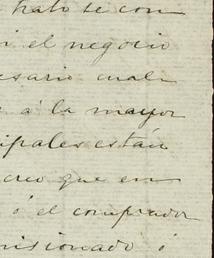 trato se con
si el negocio
esario cuali
á la mayor
ipales están
creo que en
ó el comprador
misionado ó